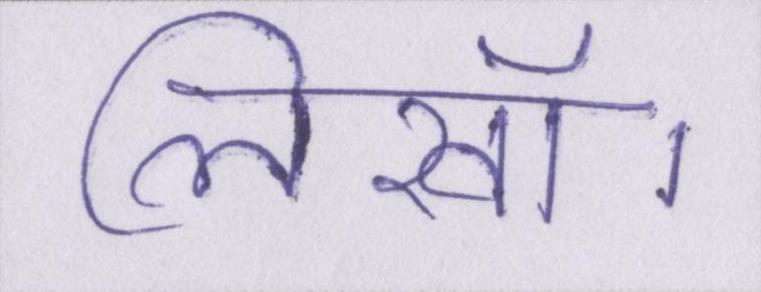 लिखॉ।